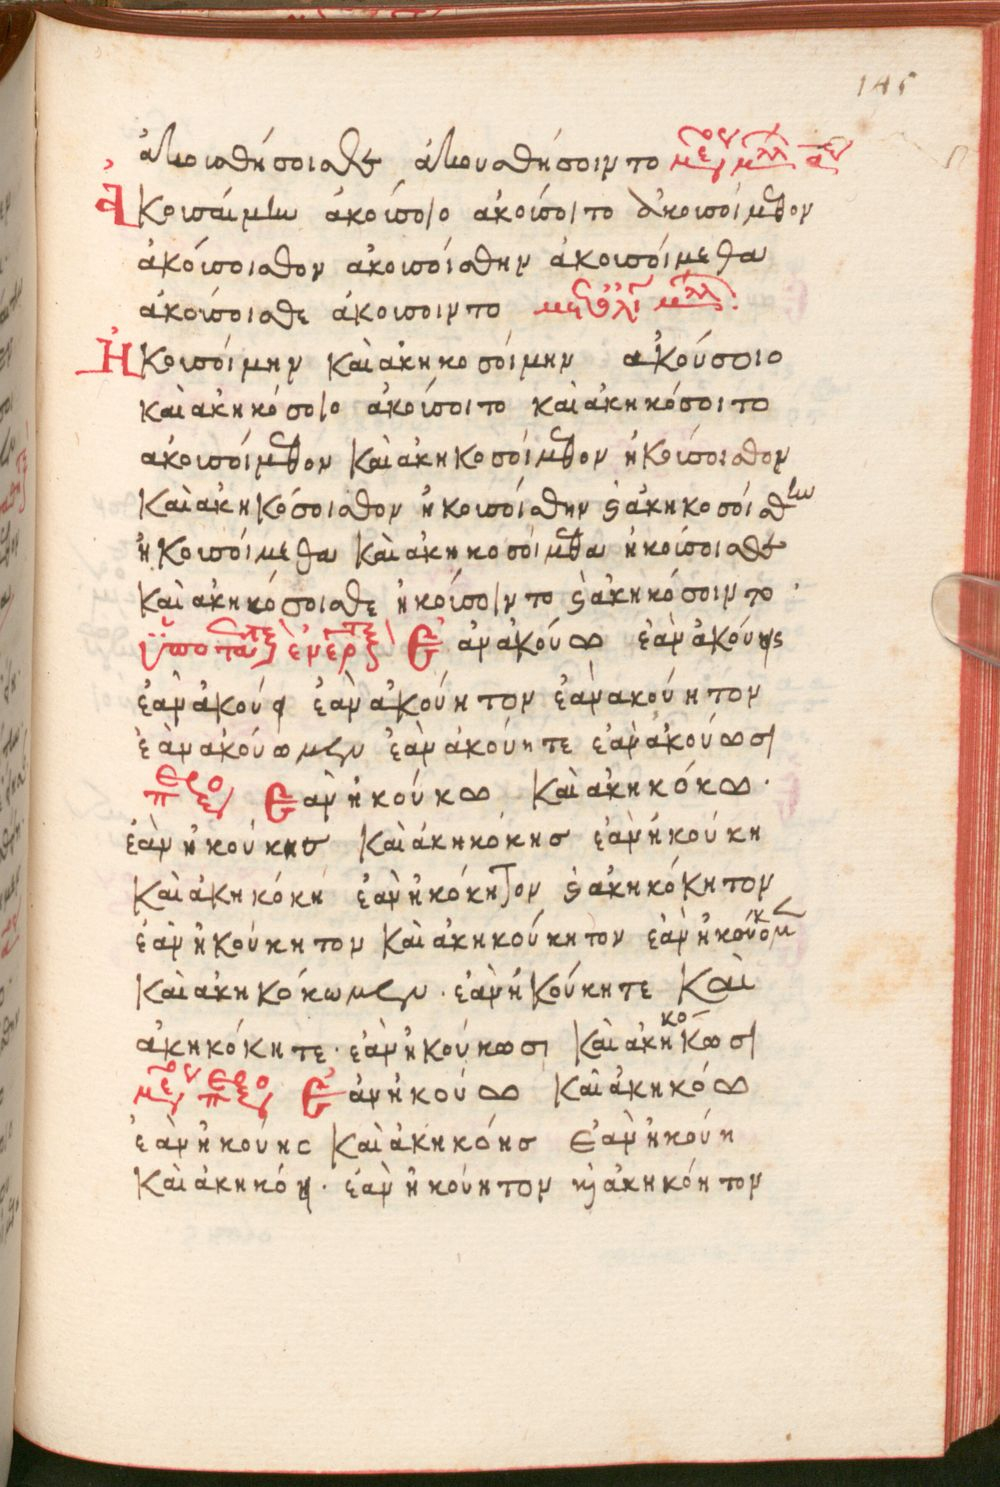 145
ἀκουσθήσοισθε ἀκουσθήσοιντο
Ἀκουσαίμην ἀκούσοιο ἀκούσοιτο ἀκουσοίμεθον
ἀκούσοισθον ἀκουσοίσθην ἀκουσοίμεθα
ἀκούσοισθε ἀκούσοιντο
Ἠκουσοίμην καὶ ἀκηκοσοίμην ἀκούσοιο
καὶ ἀκηκόσοιο ἀκούσοιτο καὶ ἀκηκόσοιτο
ἀκουσοίμεθον καὶ ἀκηκοσοίμεθον ἠκούσοισθον
καὶ ἀκηκόσοισθον ἠκουσοίσθην ϛ ἀκηκοσοίσθην
ἠκουσοίμεθα καὶ ἀκηκοσοίμεθα ἠκούσοισθε
καὶ ἀκηκόσοισθε ἠκούσοιντο ϛ ἀκηκόσοιντο ·
Ἐὰν ἀκούω ἐὰν ἀκούης
ἐὰν ἀκούη ἐὰν ἀκούητον ἐὰν ἀκούητον
ἐὰν ἀκούωμεν ἐὰν ἀκούητε ἐὰν ἀκούωσι
Ἐὰν ἠκούκω καὶ ἀκηκόκω ·
ἐὰν ἠκούκης καὶ ἀκηκόκης ἐὰν ἠκούκη
καὶ ἀκηκόκη ἐὰν ἠκόκητον ϛ ἀκηκόκητον
ἐὰν ἠκούκητον καὶ ἀκηκούκητον ἐὰν ἠκούκομεν
καὶ ἀκηκόκωμεν · ἐὰν ἠκούκητε καὶ
ἀκηκόκητε · ἐὰν ἠκούκωσι καὶ ἀκηκόκωσι
Ἐὰν ἠκούω καὶ ἀκηκόω
ἐὰν ἠκούης καὶ ἀκηκόης ἐὰν ἠκούη
καὶ ἀκηκόη · ἐὰν ἠκούητον κὶ ἀκηκόητον